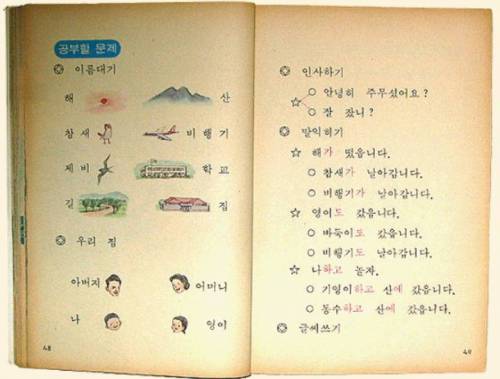 공부할 문제
◎ 이름대기
해 산
참새 비행기
제비 학교
길 집
◎ 우리 집
아버지 어머니
나 영이
48
◎ 인사하기
○ 안녕히 주무셨어요?
☆
○ 잘 잤니?
◎ 말익히기
☆ 해가 떴읍니다.
○ 참새가 날아갑니다.
○ 비행기가 날아갑니다.
☆ 영이도 갔읍니다.
○ 바둑이도 갔읍니다.
○ 비행기도 날아갑니다.
☆ 나하고 놀자.
○ 기영이하고 산에 갔읍니다.
○ 동수하고 산에 갔읍니다.
◎ 글씨쓰기
49